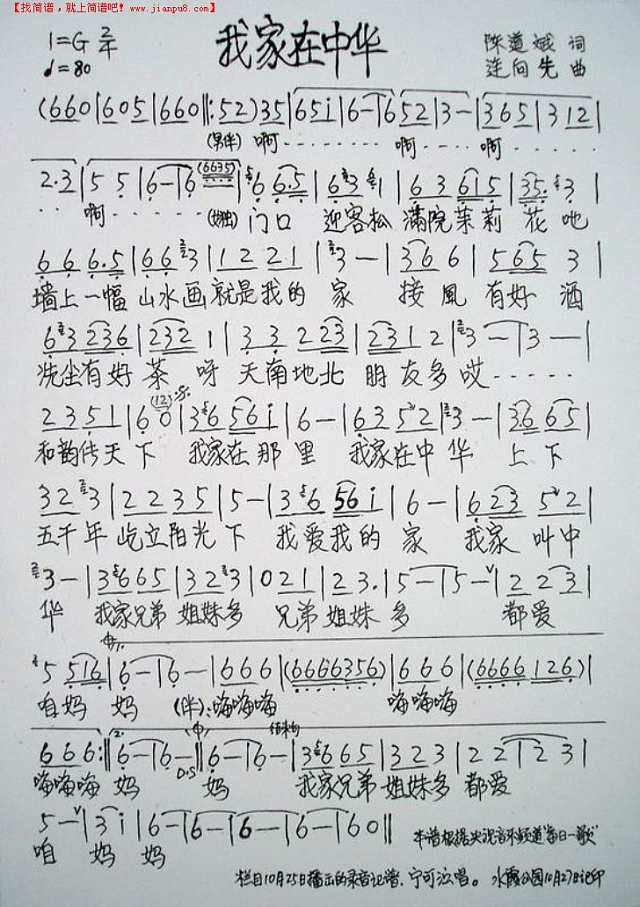 【找简谱，就上简谱吧! www.jianpu8.com】
1=G 2/4
♩=80
我家在中华
陈道斌 词
连向先 曲
(660|605|660|:52)35|651|6-|652|3-|365|312|
(男伴) 啊 啊 啊
2·3|55|6-|6(6635)66·5|63 1|63615|35·3|
啊 (女独) 门口 迎客松 满院茉莉 花吔
666·5|663|1221|3-|366|5653|
墙上一幅 山水画就是我的 家 接風 有好 酒
63236|2321|33223|2312|3-|3-|
洗尘有好茶 呀 天南地北 朋友多哎
2351|60(12)|36561|6-|6352|3-|3·665|
和韵传天下 我家在那里 我家在中华 上下
323|2235|5-|36561|6-|62352|
五千年 屹立阳光下 我爱我的 家 我家 叫中
3-|3665|323|021|23·|5-|5-|223|
华 我家兄弟 姐妹多 兄弟 姐妹 多 都爱
5516|6-|6-|666|(6666356)|666|(6666126)|
咱妈 妈 (伴):嗨嗨嗨 嗨嗨嗨
666:|2.6-|6-|D.S 6-|6-|结束句 3665|323|22|123|
嗨嗨嗨 妈 妈 我家兄弟 姐妹多 都爱
5-|31|6-|6-|6-|6-|60||
咱 妈 妈
本谱根据央视音乐频道"每日一歌"
栏目10月25日播出的录音记谱.宁可汝唱。 水霞公园10月27日记印